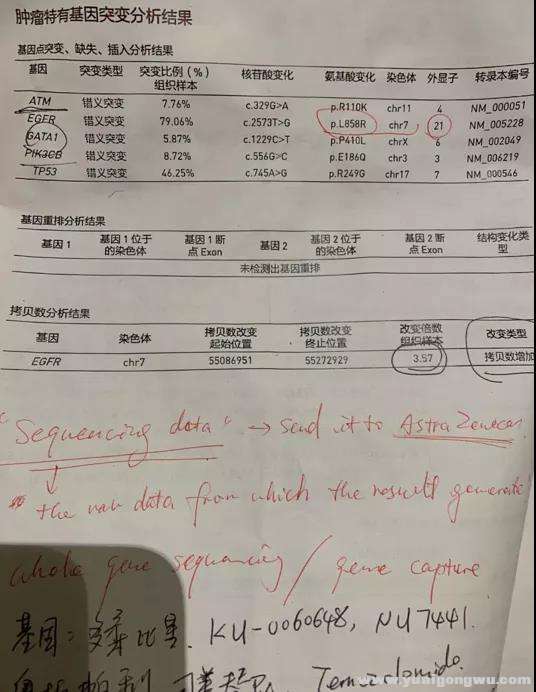 肿瘤特有基因突变分析结果
基因点突变、缺失、插入分析结果
基因 突变类型 突变比例（%）组织样本 核苷酸变化 氨基酸变化 染色体 外显子 转录本编号
ATM 错义突变 7.76% c.329G>A p.R110K chr11 4 NM_000051
EGFR 错义突变 79.06% c.2573T>G p.L858R chr7 21 NM_005228
GATA1 错义突变 5.87% c.1229C>T p.P410L chrX 6 NM_002049
PIK3CB 错义突变 8.72% c.556G>C p.E186Q chr3 3 NM_006219
TP53 错义突变 46.25% c.745A>G p.R249G chr17 7 NM_000546
基因重排分析结果
基因 1 基因 1 位于的染色体 基因 1 断点 Exon 基因 2 基因 2 位于的染色体 基因 2 断点 Exon 结构变化类型
未检测出基因重排
拷贝数分析结果
基因 染色体 拷贝数改变起始位置 拷贝数改变终止位置 改变倍数组织样本 改变类型
EGFR chr7 55086951 55272929 3.57 拷贝数增加
"Sequencing data" → send it to AstraZeneca
the raw data from which the result generate
whole gene sequencing / gene capture
基因: 比星. KU-0060648, NU7441.
www.yunigongwu.com